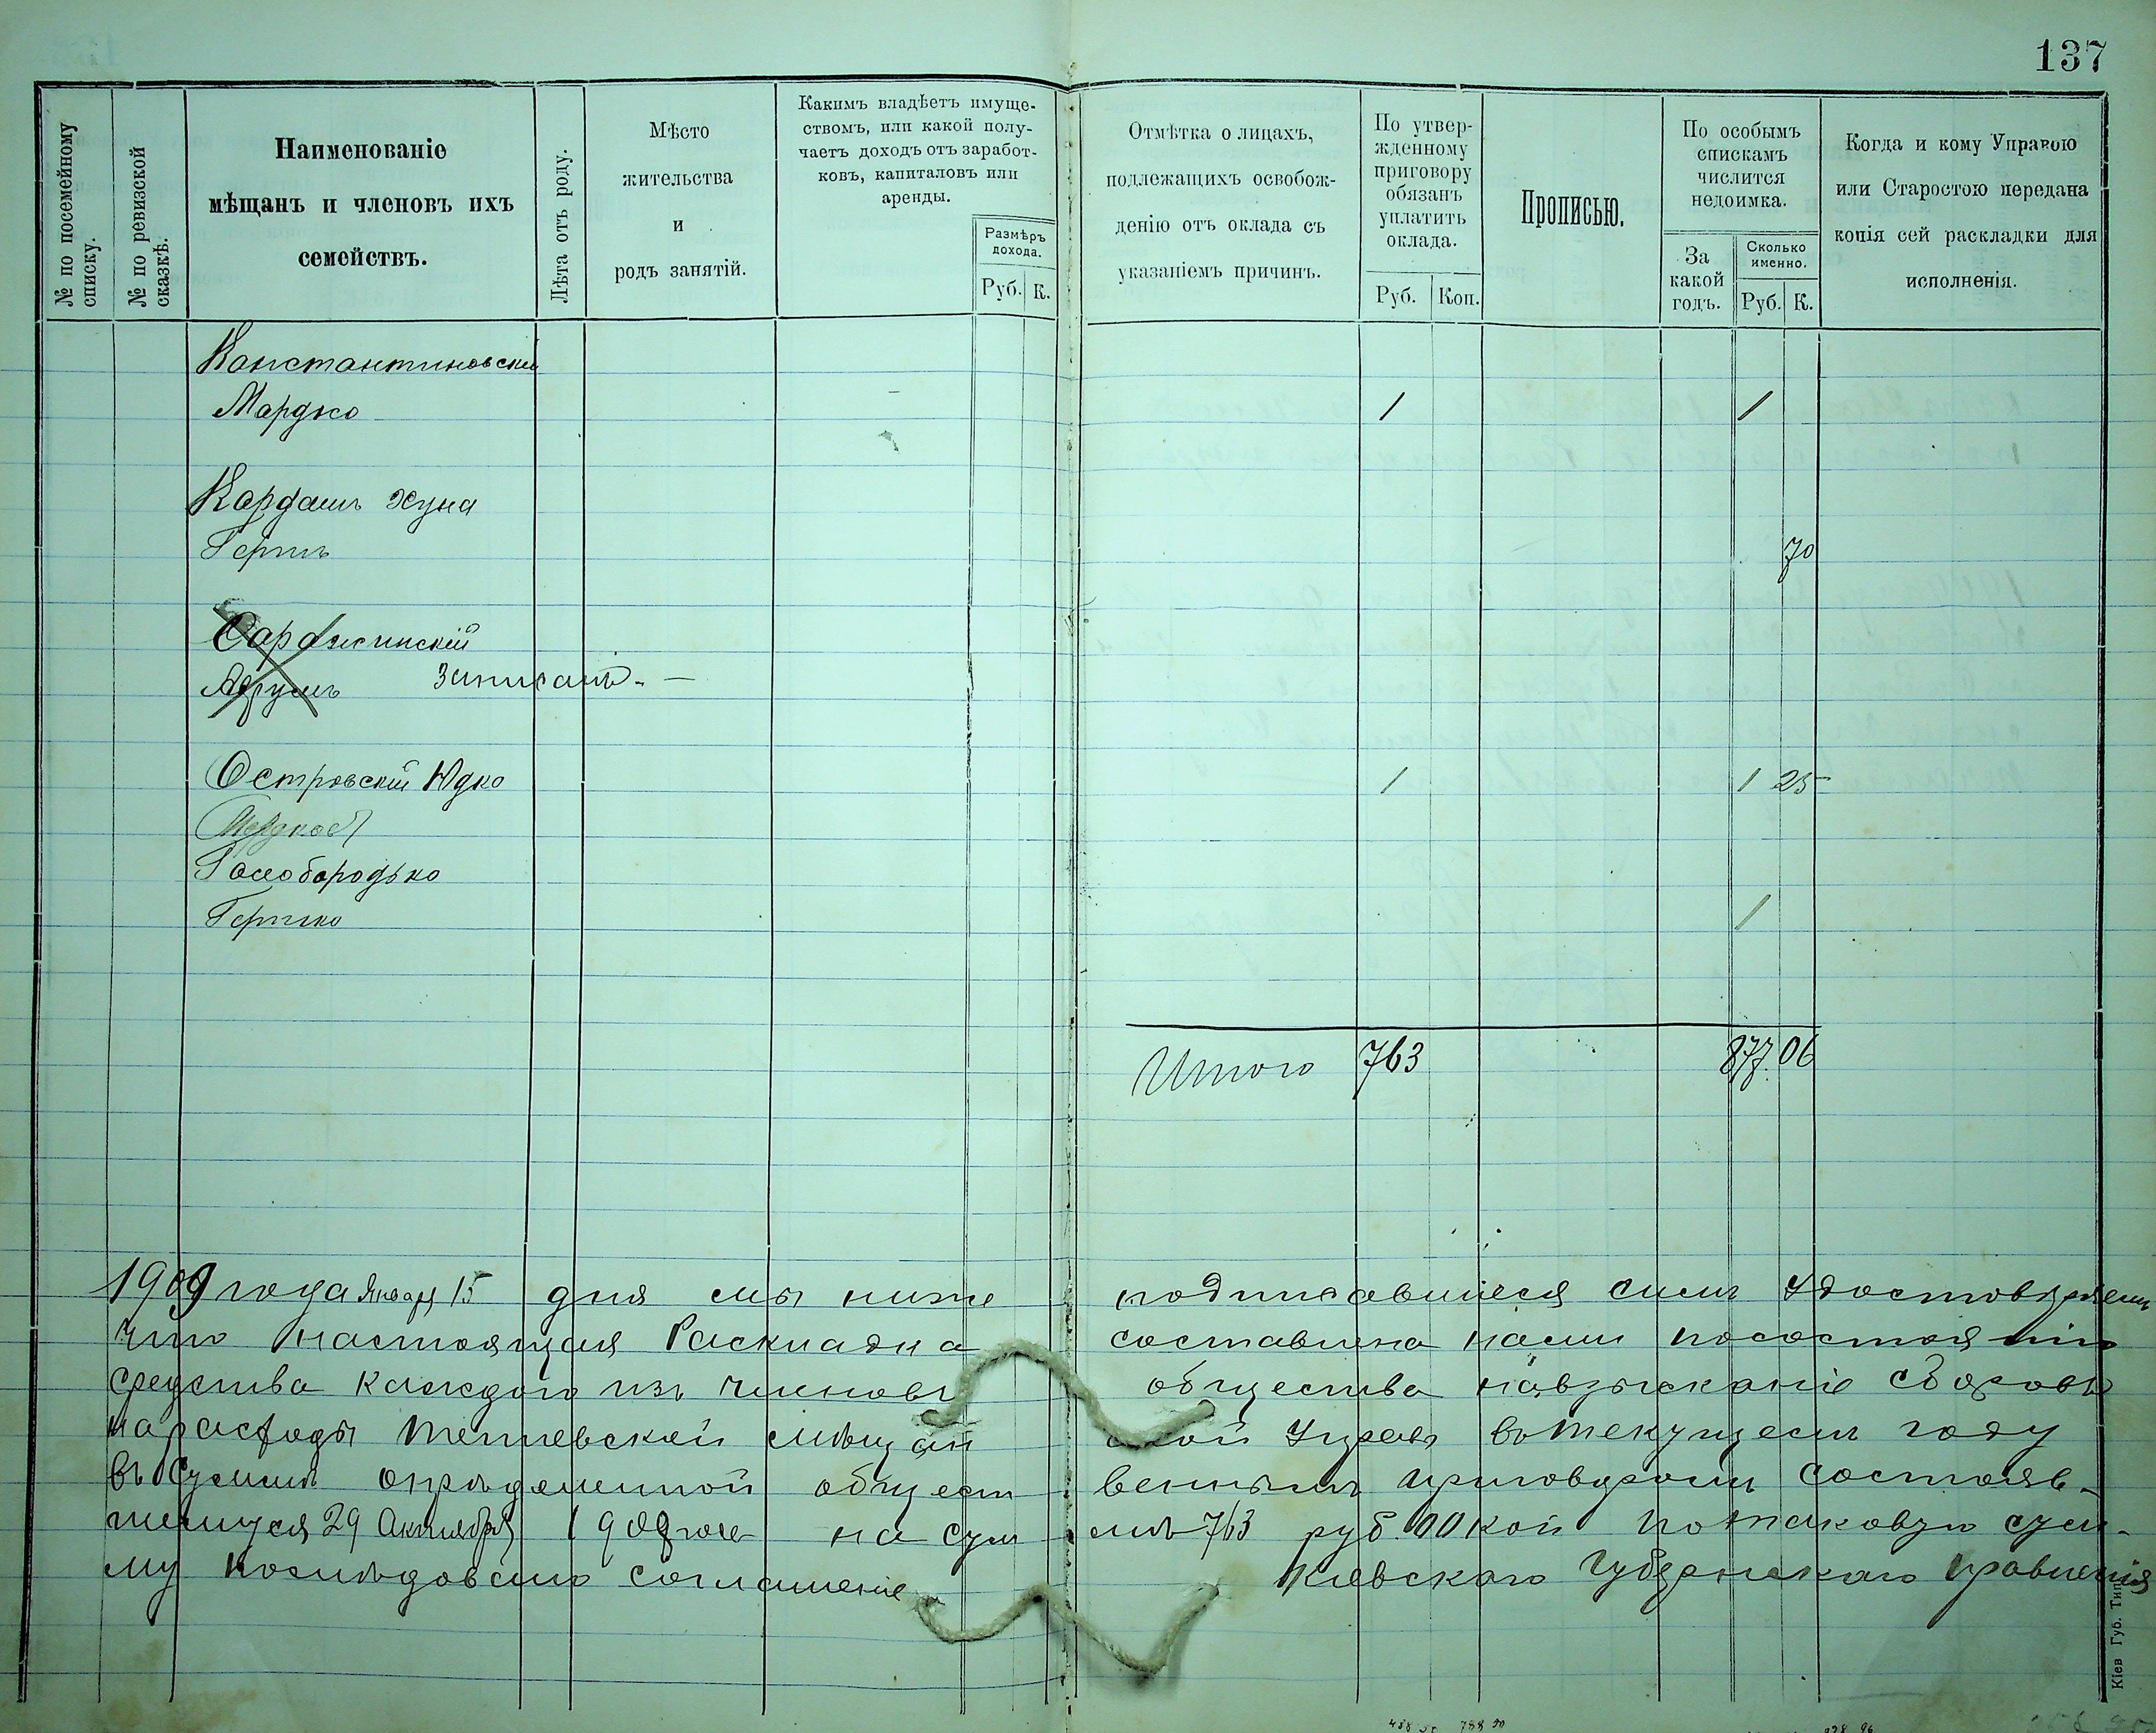 137
№ по посемейному списку.
№ по ревизской сказкѣ.
Наименованіе
мѣщанъ и членовъ ихъ
семействъ.
Лѣта отъ роду.
Мѣсто
жительства
и
родъ занятій.
Какимъ владѣетъ имуще-
ствомъ, или какой полу-
чаетъ доходъ отъ заработ-
ковъ, капиталовъ или
аренды.
Размѣръ
дохода.
Руб. К.
Отмѣтка о лицахъ,
подлежащихъ освобож-
денію отъ оклада съ
указаніемъ причинъ.
По утвер-
жденному
приговору
обязанъ
уплатить
оклада.
Руб. Коп.
Прописью.
По особымъ
спискамъ
числится
недоимка.
За
какой
годъ.
Сколько
именно.
Руб. К.
Когда и кому Управою
или Старостою передана
копія сей раскладки для
исполненія.
Константиновскій
Мардко 1 1
Кардашъ Хуна
Гершъ 70
Саражинскій
Записанъ. —
Островскій Юдко 1 1 25
Голобородько
Гершко 1
Итого 763 877. 06
1909 года Января 15 дня мы ниже подписавшіеся симъ удостовѣряемъ
что настоящая Раскладка составлена нами посостоянію
средства каждого изъ членовъ общества навзысканіе сборовъ
нарасходы мѣщан ской Управы вътекущемъ году
въ суммѣ опредѣленной общест веннымъ приговоромъ состояв-
шемуся 29 Октября 190 на сум мѣ 763 руб. 00 коп потаковую сум-
му послѣдовало соглашеніе Кіевскаго Губернскаго Правленія
Кіев Губ. Тип.